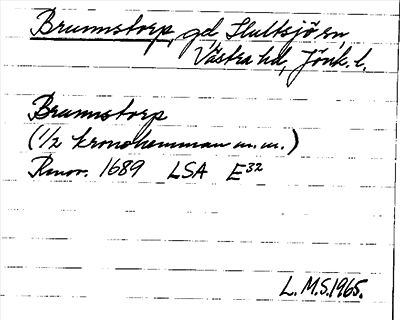 Brunnstorp, gd, Hultsjö sn,
Västra hd, Jönk. l.
Brunnstorp
(1/2 kronohemman m.m.)
Rmor. 1689 LSA E32
L.M.S. 1965.